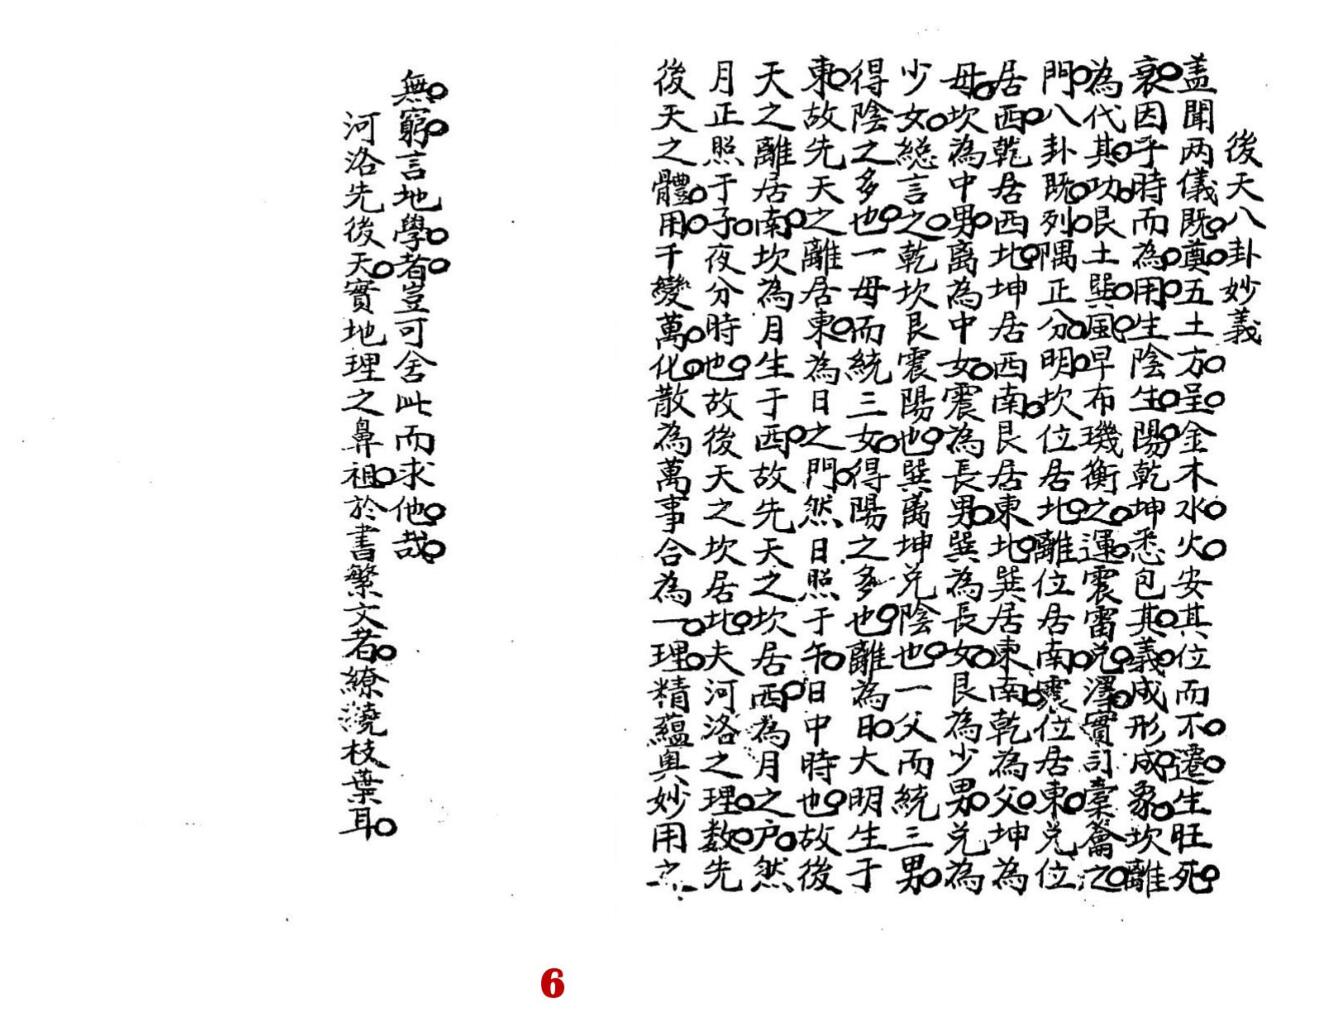 後天八卦妙義
盖聞两儀既奠五土方呈金木水火安其位而不遷生旺死
衰因乎時而為用生陰生陽乾坤悉包其義成形成象坎離
為代其功艮土巽風早布璣衡之運震雷兌澤實司橐籥之
門八卦既列隅正分明坎位居北離位居南震位居東兌位
居西乾居西北坤居西南艮居東北巽居東南乾為父坤為
母坎為中男离為中女震為長男巽為長女艮為少男兌為
少女総言之乾坎艮震陽也巽离坤兌陰也一父而統三男
得陰之多也一母而統三女得陽之多也離為日大明生于
東故先天之離居東為日之門然日照于午日中時也故後
天之離居南坎為月生于西故先天之坎居西為月之户然
月正照于子夜分時也故後天之坎居北夫河洛之理数先
後天之體用千變萬化散為萬事合為一理精蘊奥妙用之
無窮言地學者豈可舍此而求他哉
河洛先後天實地理之鼻祖於書繁文者繚繞枝葉耳
6